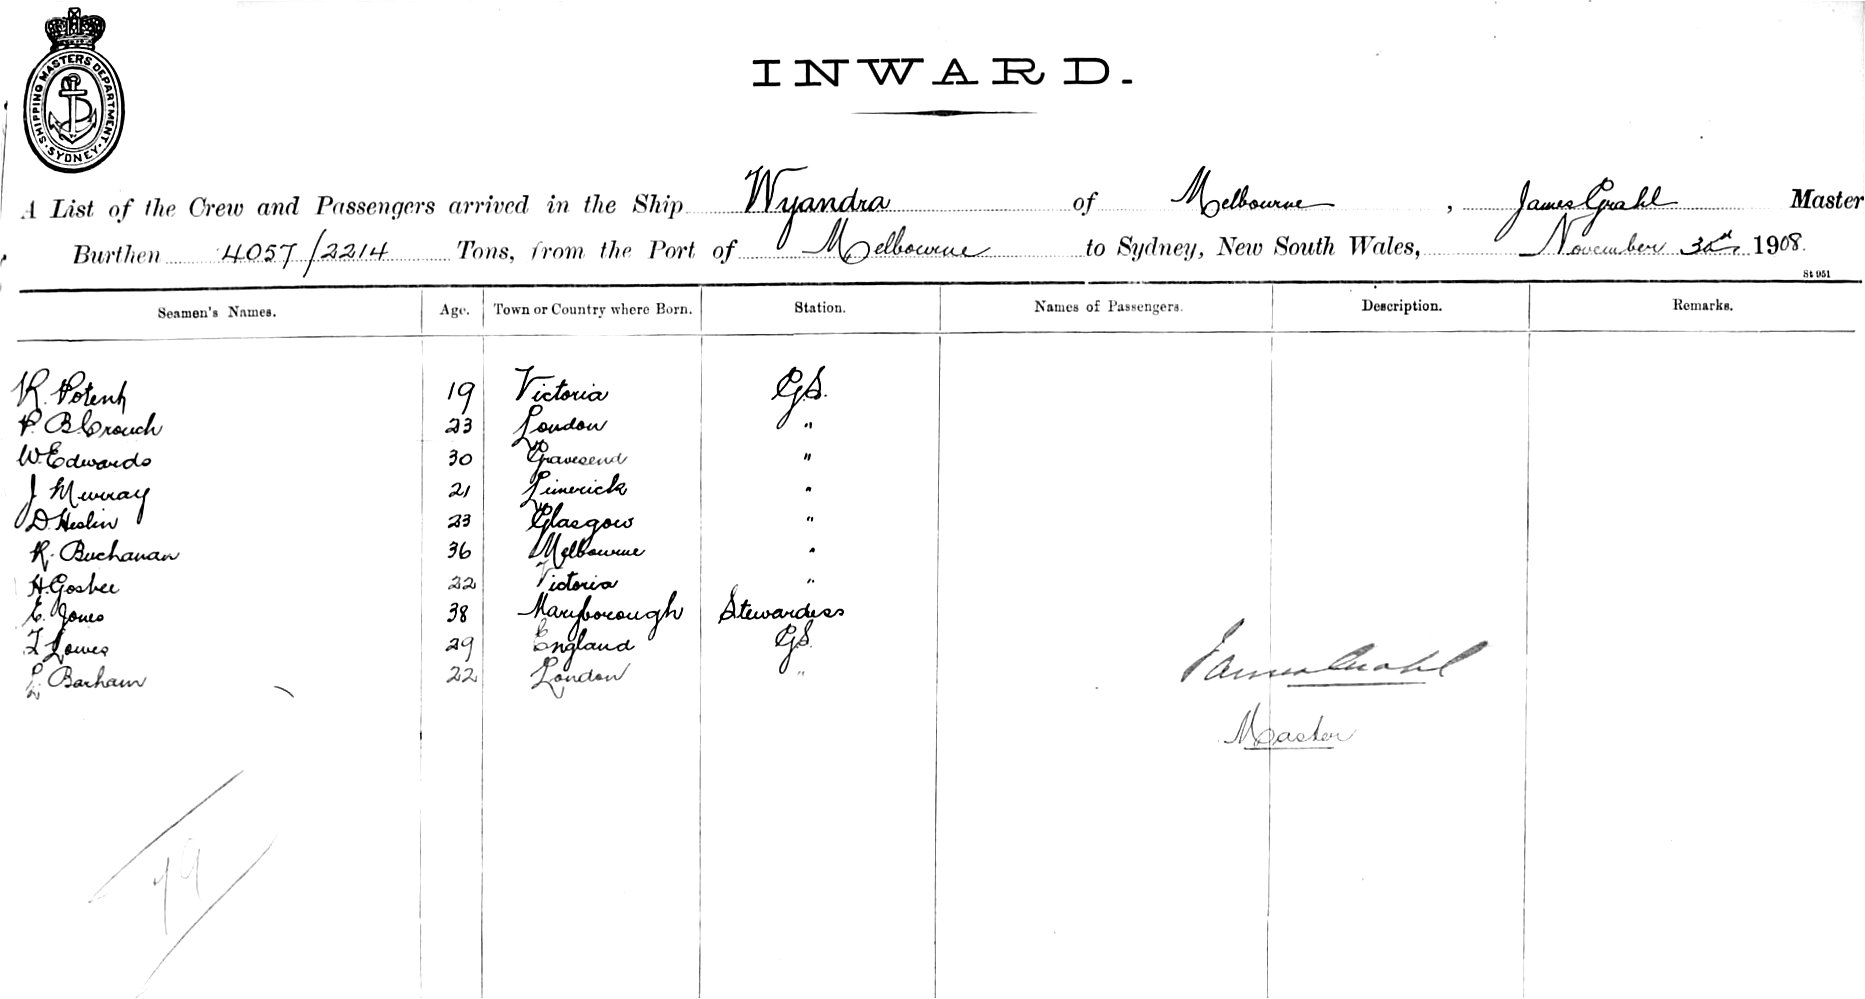 SHIPPING MASTERS DEPARTMENT · SYDNEY ·
INWARD.
A List of the Crew and Passengers arrived in the Ship Wyandra of Melbourne, James Grahl Master
Burthen 4057/2214 Tons, from the Port of Melbourne to Sydney, New South Wales, November 30th 1908.
St 951
Seamen's Names. Age. Town or Country where Born. Station. Names of Passengers. Description. Remarks.
R. 19 Victoria G.S.
P. B. Crouch 23 London "
W. Edwards 30 Gravesend "
J Murray 21 Limerick "
D. Heslin 23 Glasgow "
R. Buchanan 36 Melbourne "
H. Gosbee 22 Victoria "
E. Jones 38 Maryborough Stewardess
Lowes 29 England G.S.
Barham 22 London "
James Grahl
Master
79